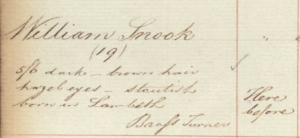 William Snook
(19)
5/6 dark – brown hair
hazel eyes – stoutish
born in Lambeth
Brass Turner
Here
before